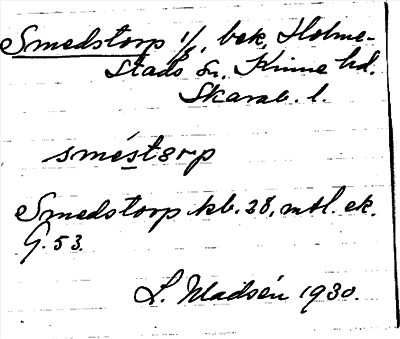 Smedstorp 1/6, bek, Holme-
stads sn. Kinne hd.
Skarab. l.
sméstorp
Smedstorp kb. 28, mtl. ek.
G. 53.
L. Madsén 1930.